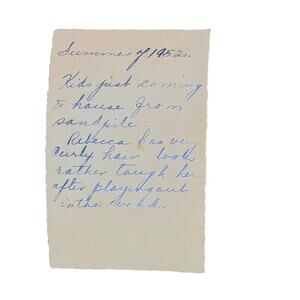 Summer of 1952.
Kids just coming
to house from
sandpile
Rebecca has very
curly hair looks
rather tough here
after playing out
in the wind.